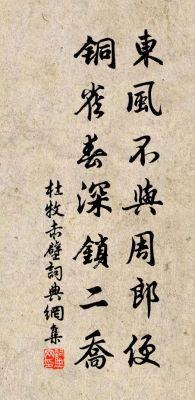 東風不與周郎便
銅雀春深鎖二喬
杜牧赤壁詞典網集